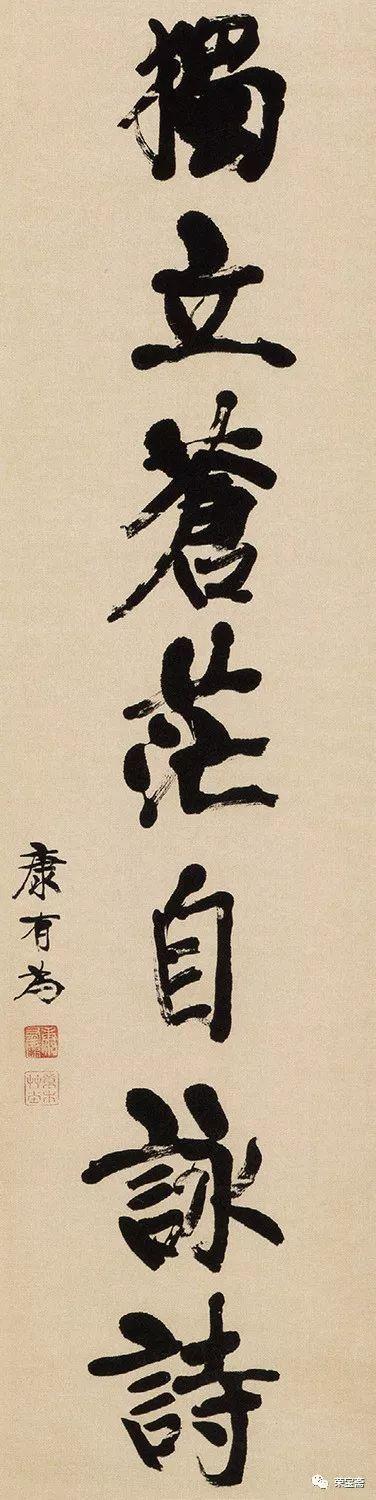 獨立蒼茫自詠詩
康有為
荣宝斋